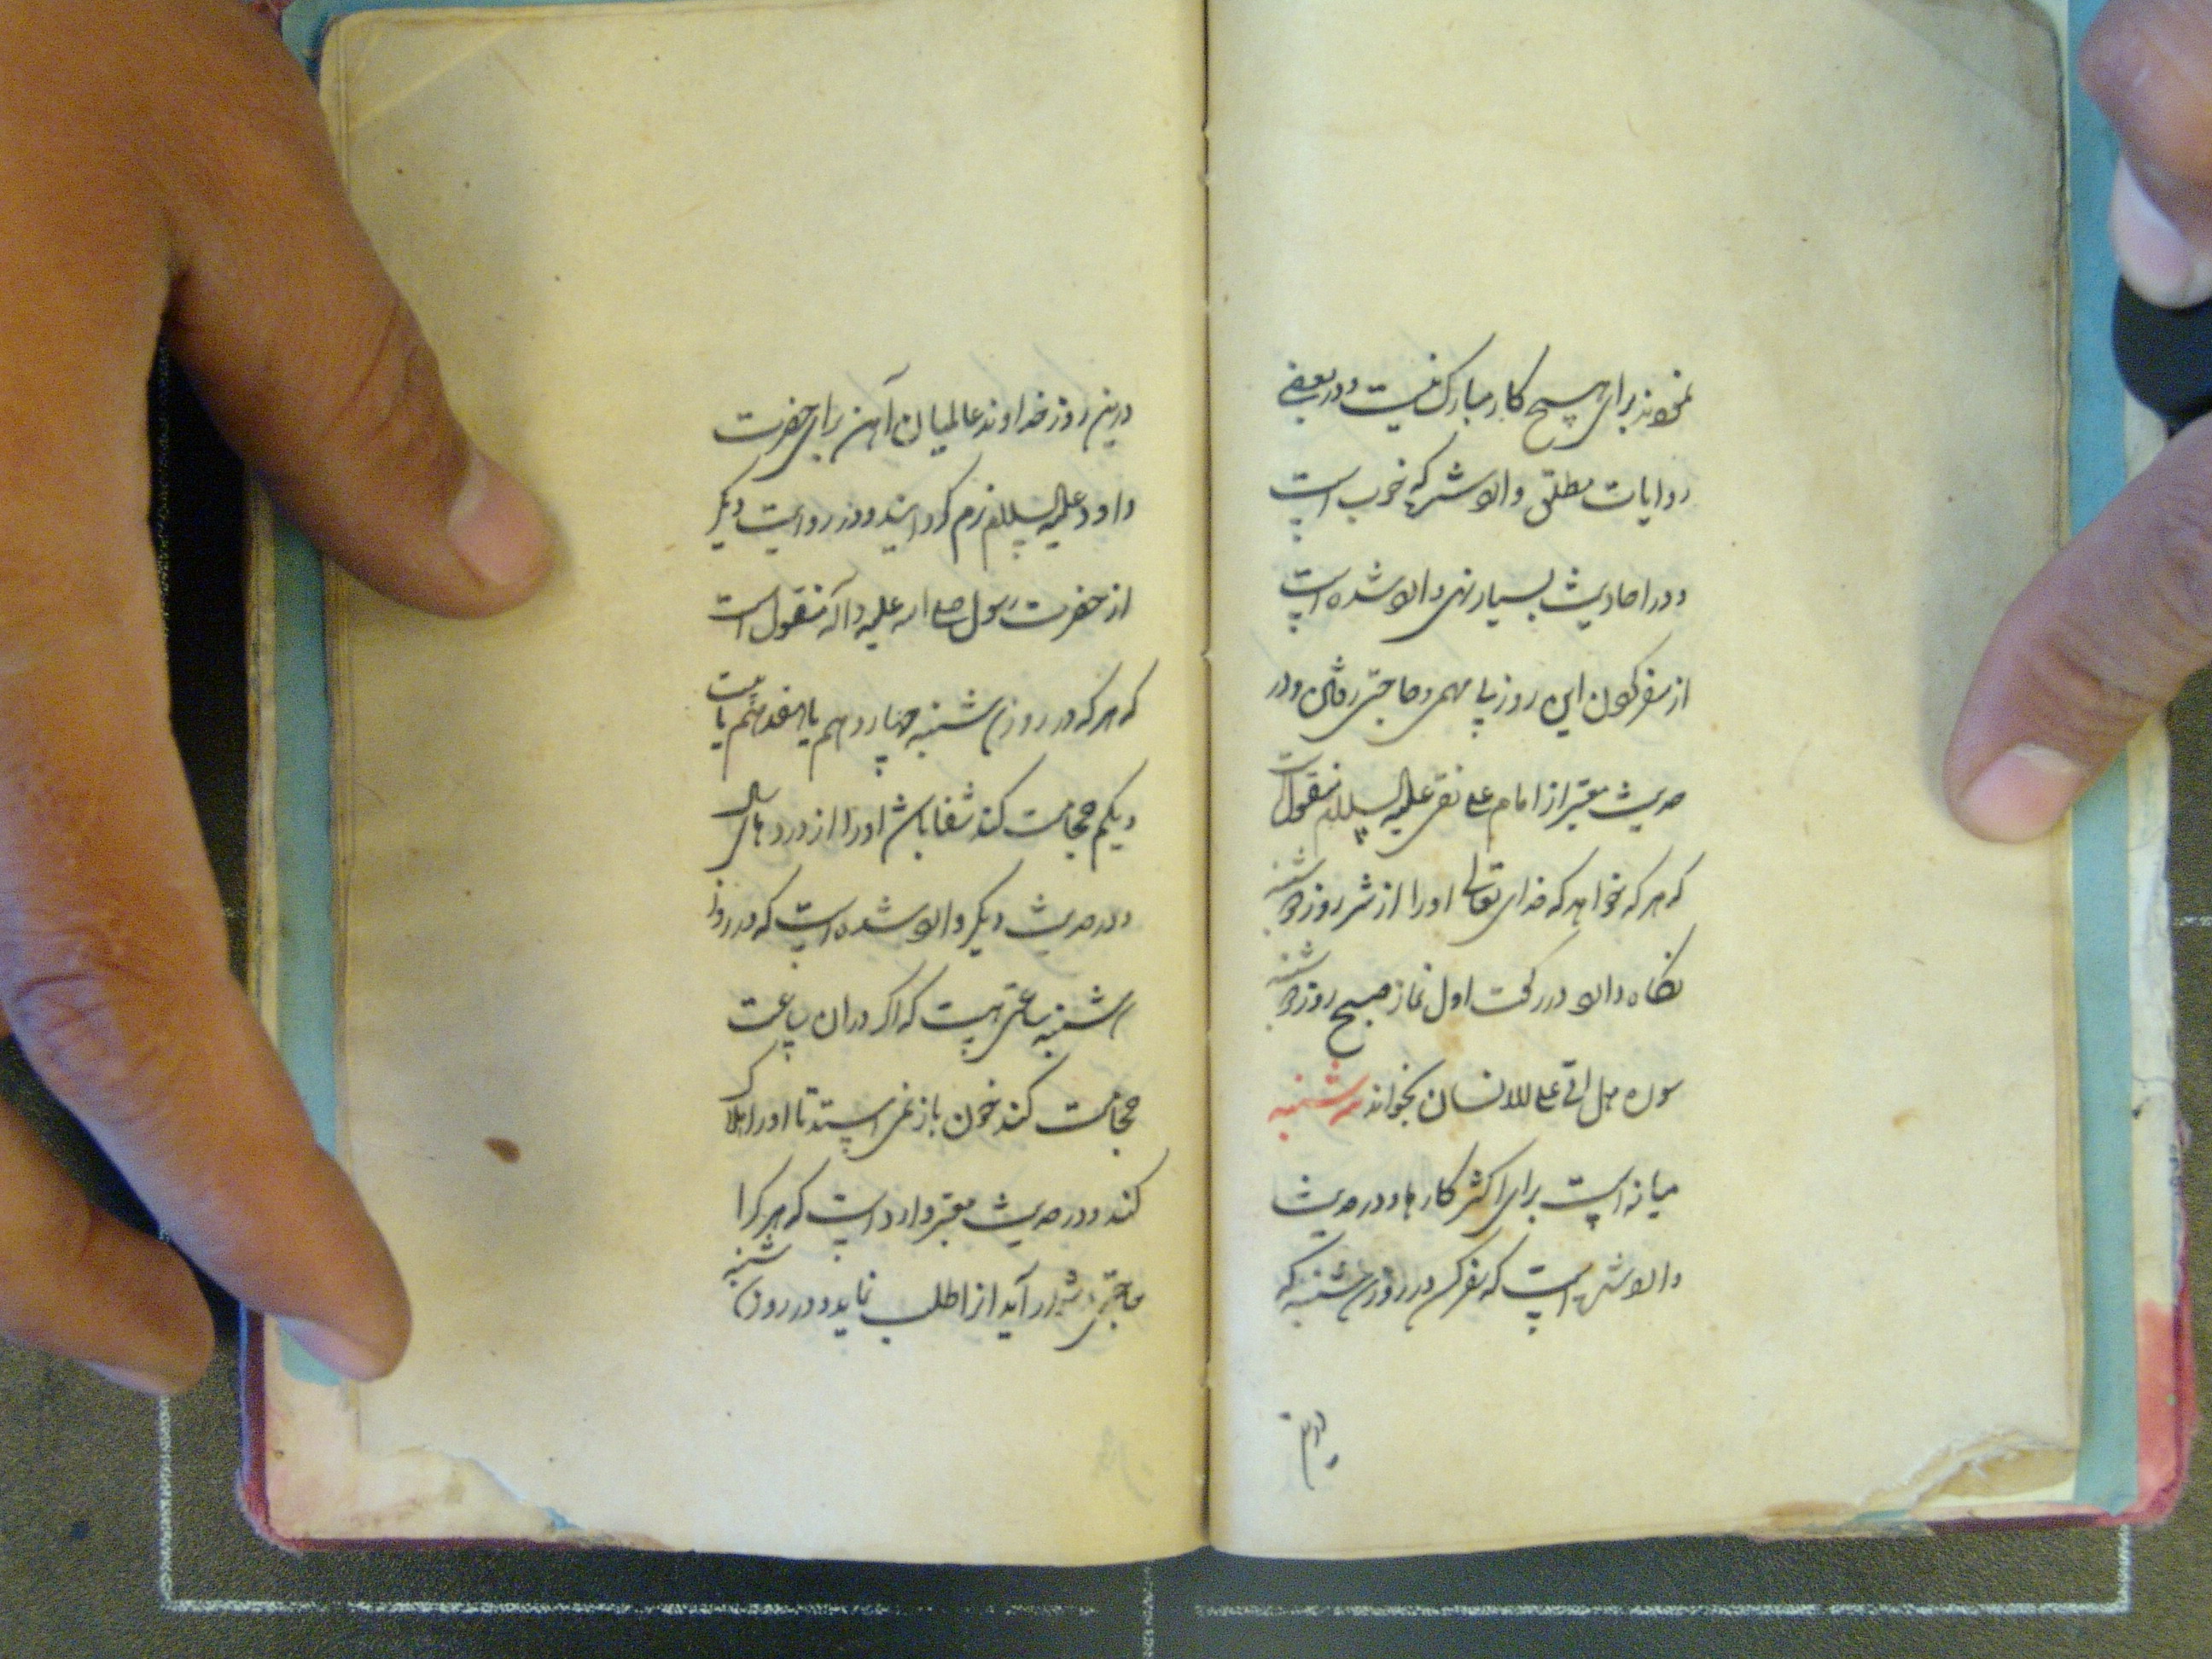 نحوند برای هیچ کار مبارک نیست و در بعضی
روایات مطلق وارد شده که خوب است
و در احادیث بسیار نهی وارد شده است
از سفر کردن این روز پا مهمی و حاجتی رفتن و در
حدیث معتبر از امام علی نقی علیه السلام منقول است
که هر که خواهد که خدای تعالی او را از شر روز دوشنبه
نگاه دارد در رکعت اول نماز صبح روز دوشنبه
سوره هل اتی علی الانسان بخواند سه شنبه
میانه است برای اکثر کارها و در حدیث
وارد شده است که سفر کن در روز سه شنبه که
درین
درین روز خداوند عالمیان آهن برای حضرت
داود علیه السلام نرم کردانید و در روایت دیگر
از حضرت رسول صلی الله علیه و آله منقول است
که هر که در روز سه شنبه چهاردهم یا هفدهم یا بیست
و یکم حجامت کند شفا باشد او را از دردهای سال
و در حدیث دیگر وارد شده است که در روز
سه شنبه ساعتی هست که اگر در آن ساعت
حجامت کند خون باز نمی ایستد تا او را هلاک
کند و در حدیث معتبر وارد است که هر کرا
حاجتی دشوار آید از طلب نماید و در روز سه شنبه